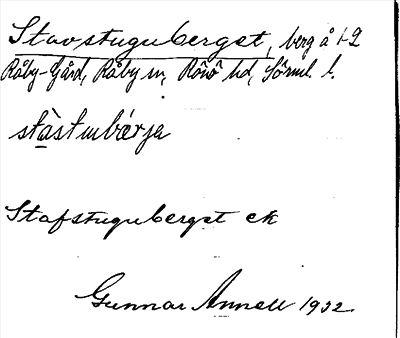 Stavstuguberget, berg å 1-2
Råby-Gård, Råby sn, Rönö hd, Sörml. l.
stàstubǽrja
Stafstuguberget ek
Gunnar Annell 1932.